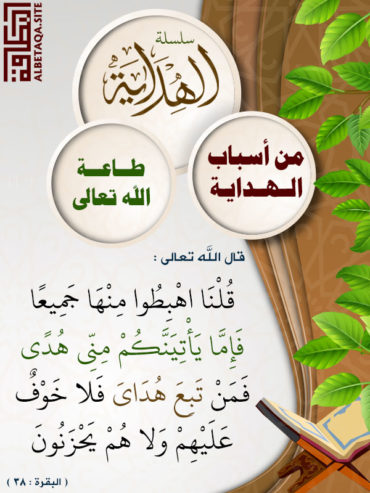 البطاقة
ALBETAQA.SITE
سلسلة
الهداية
من أسباب
الهداية
طاعة
الله تعالى
قال الله تعالى :
قُلْنَا اهْبِطُوا مِنْهَا جَمِيعًا
فَإِمَّا يَأْتِيَنَّكُمْ مِنِّي هُدًى
فَمَنْ تَبِعَ هُدَايَ فَلَا خَوْفٌ
عَلَيْهِمْ وَلَا هُمْ يَحْزَنُونَ
( البقرة : ٣٨ )